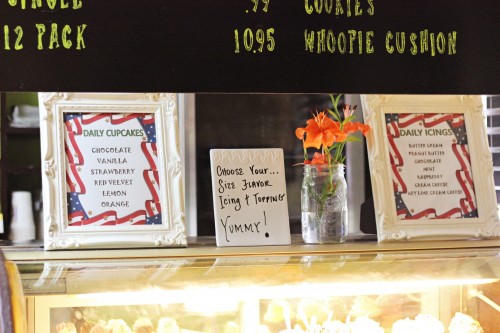 SINGLE .99 COOKIES
12 PACK 10.95 WHOOPIE CUSHION
DAILY CUPCAKES
CHOCOLATE
VANILLA
STRAWBERRY
RED VELVET
LEMON
ORANGE
CHOOSE YOUR...
SIZE FLAVOR
ICING & TOPPING
YUMMY!
DAILY ICINGS
BUTTER CREAM
PEANUT BUTTER
CHOCOLATE
MINT
RASPBERRY
CREAM CHEESE
KEY LIME CREAM CHEESE